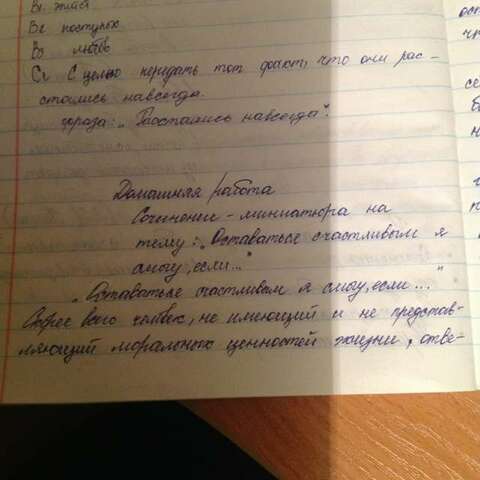 В1. житы
В2 поступок
В3 любовь
С1 С целью передать тот факт, что они рас-
стались навсегда.
фраза: „Расстались навсегда".
Домашняя работа
Сочинение - миниатюра на
тему: „Оставаться счастливым я
смогу, если..."
„Оставаться счастливым я смогу, если..."
Скорее всего человек, не имеющий и не представ-
ляющий моральных ценностей жизни, отве-
ост
чт
се